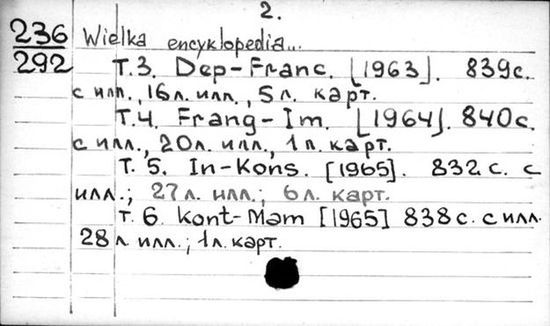 2.
236
292
Wielka encyklopedia...
Т.3. Dep-Franc. [1963]. 839с.
с илл., 16л. илл., 5л. карт.
Т.4. Frang-Im. [1964]. 840с.
с илл., 20л. илл., 1л. карт.
Т. 5. In-Kons. [1965]. 832с. с
илл.; 27л. илл.; 6л. карт.
Т. 6. Kont-Mam [1965] 838с. с илл.
28 л илл.; 1л. карт.